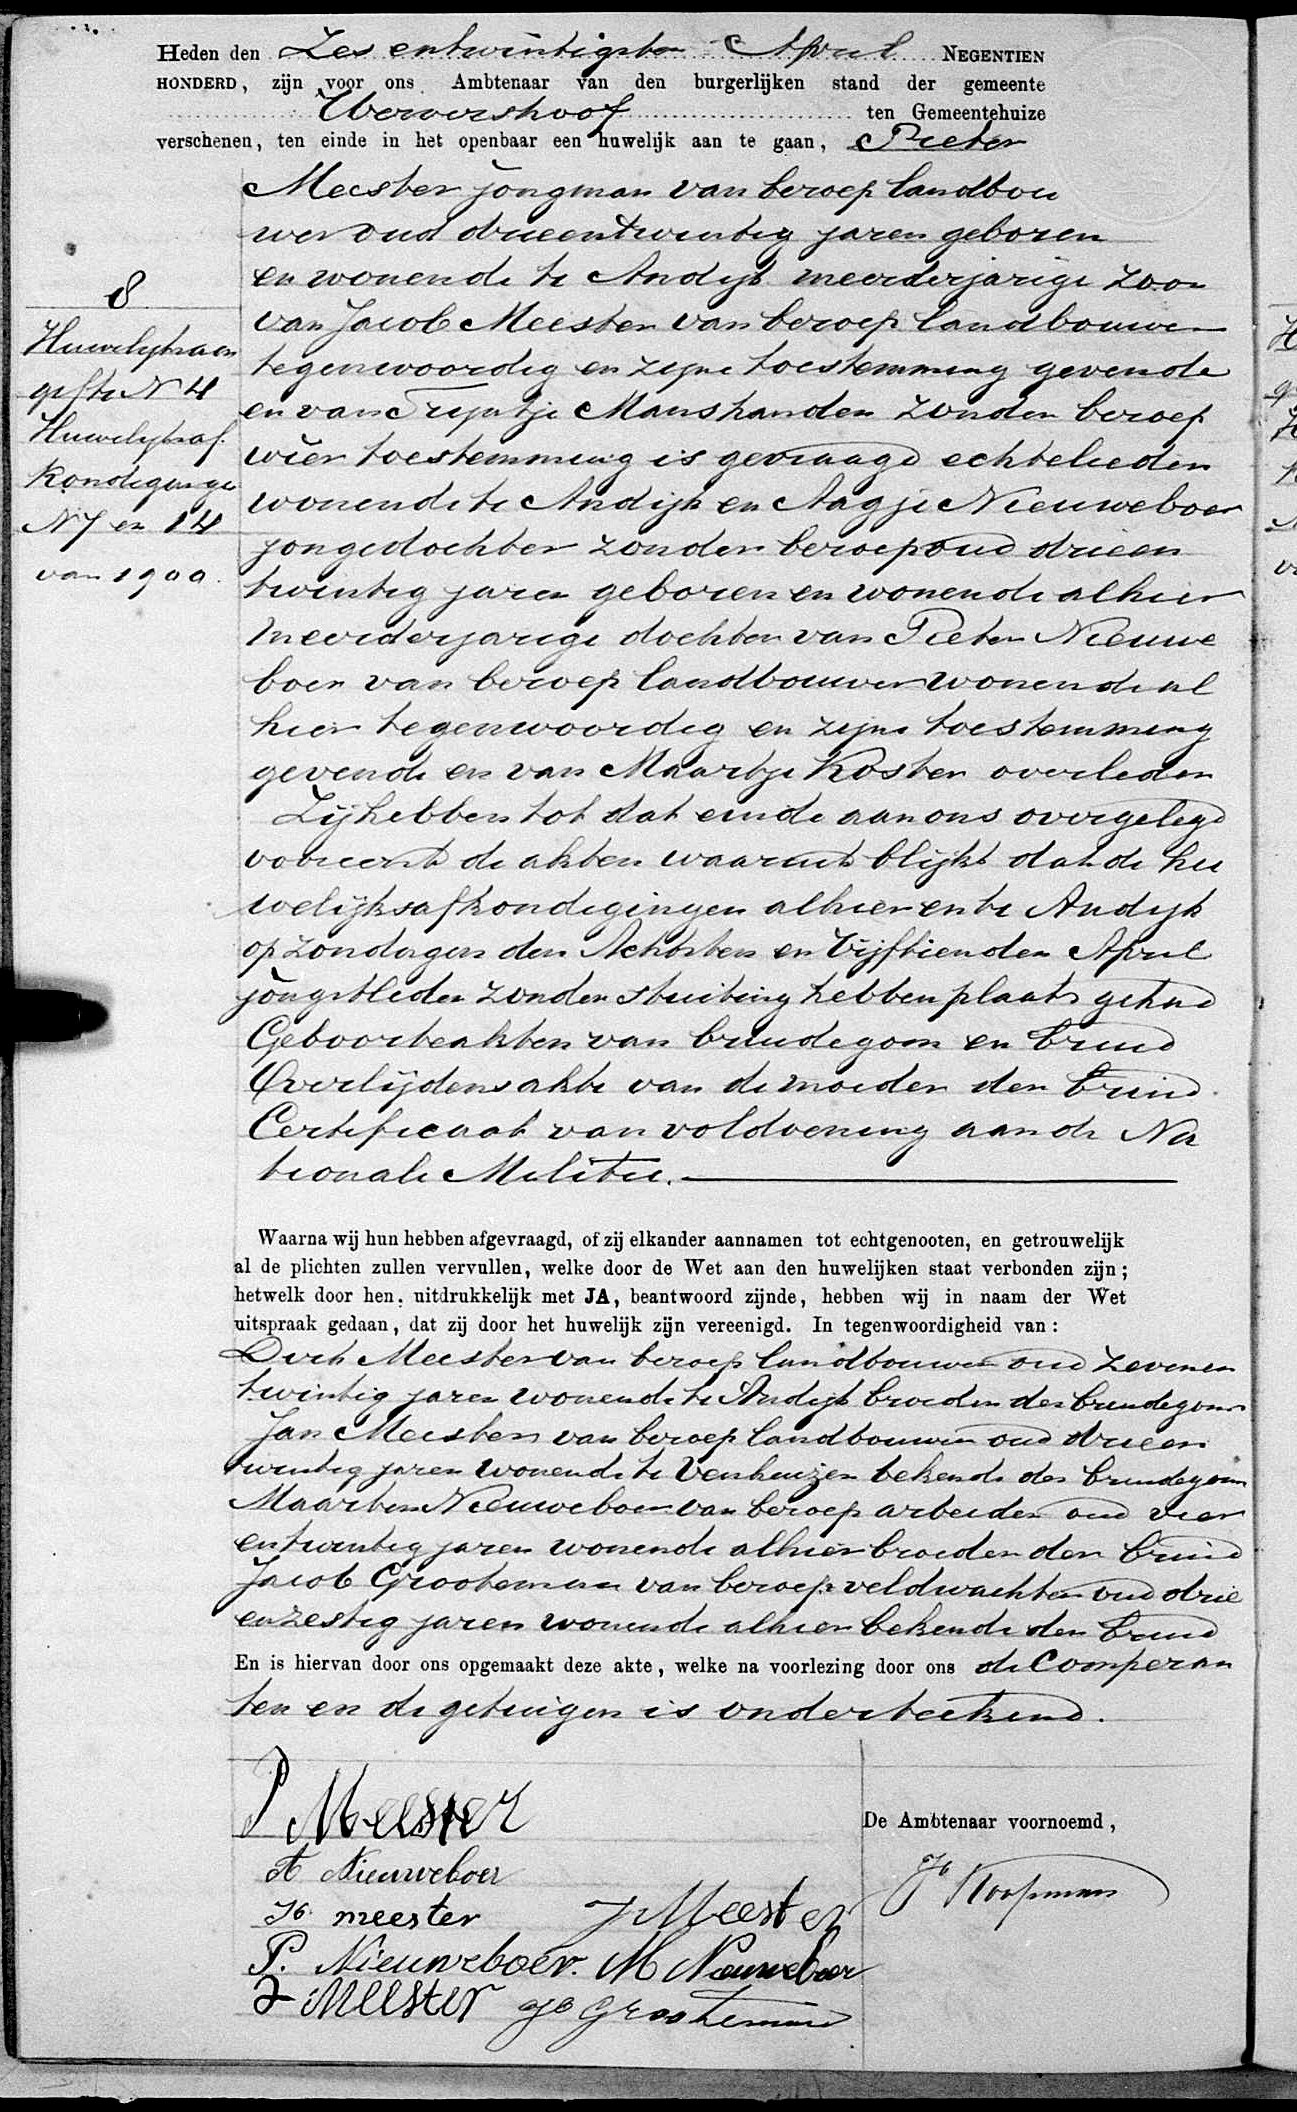 Heden den Zes entwintigsten April NEGENTIEN
HONDERD, zijn voor ons Ambtenaar van den burgerlijken stand der gemeente
Wervershoof ten Gemeentehuize
verschenen, ten einde in het openbaar een huwelijk aan te gaan, Pieter
Meester jongman van beroep landbou
wer oud drieentwintig jaren geboren
en wonende te Andijk meerderjarige zoon
van Jacob Meester van beroep landbouwer
tegenwoordig en zijne toestemming gevende
en van Trijntje Manshanden zonder beroep
wier toestemming is gevraagd echtelieden
wonende te Andijk en Aagje Nieuweboer
jongedochter zonder beroep oud drieen
twintig jaren geboren en wonende alhier
meerderjarige dochter van Pieter Nieuwe
boer van beroep landbouwer wonende al
hier tegenwoordig en zijne toestemming
gevende en van Maartje Koster overleden
Zij hebben tot dat einde aan ons overgelegd
vooreerst de akten waaruit blijkt dat de hu
welijksafkondigingen alhier en te Andijk
op zondagen den Achtsten en Vijftienden April
jongstleden zonder stuiting hebben plaats gehad
Geboorteakten van bruidegom en bruid
Overlijdensakte van de moeder der bruid.
Certificaat van voldoening aan de Na
tionale Militie.
8
Huwelijksaan
gifte N 4
Huwelijksaf
kondiginge
N 7 en 14
van 1900.
Waarna wij hun hebben afgevraagd, of zij elkander aannamen tot echtgenooten, en getrouwelijk
al de plichten zullen vervullen, welke door de Wet aan den huwelijken staat verbonden zijn;
hetwelk door hen, uitdrukkelijk met JA, beantwoord zijnde, hebben wij in naam der Wet
uitspraak gedaan, dat zij door het huwelijk zijn vereenigd. In tegenwoordigheid van:
Dirk Meester van beroep landbouwer oud zevenen
twintig jaren wonende te Andijk broeder des bruidegoms
Jan Meester van beroep landbouwer oud drieen
twintig jaren wonende te Venhuizen bekende des bruidegoms
Maarten Nieuweboer van beroep arbeider oud vier
entwintig jaren wonende alhier broeder der bruid
Jacob Grooteman van beroep veldwachter oud drie
enzestig jaren wonende alhier bekende der bruid
En is hiervan door ons opgemaakt deze akte, welke na voorlezing door ons de Comperan
ten en de getuigen is onderteekend.
P Meester
De Ambtenaar voornoemd,
A Nieuweboer
Koopman
Jb. meester J Meester
P. Nieuweboer. M Nieuweboer
Meester Jb Grooteman